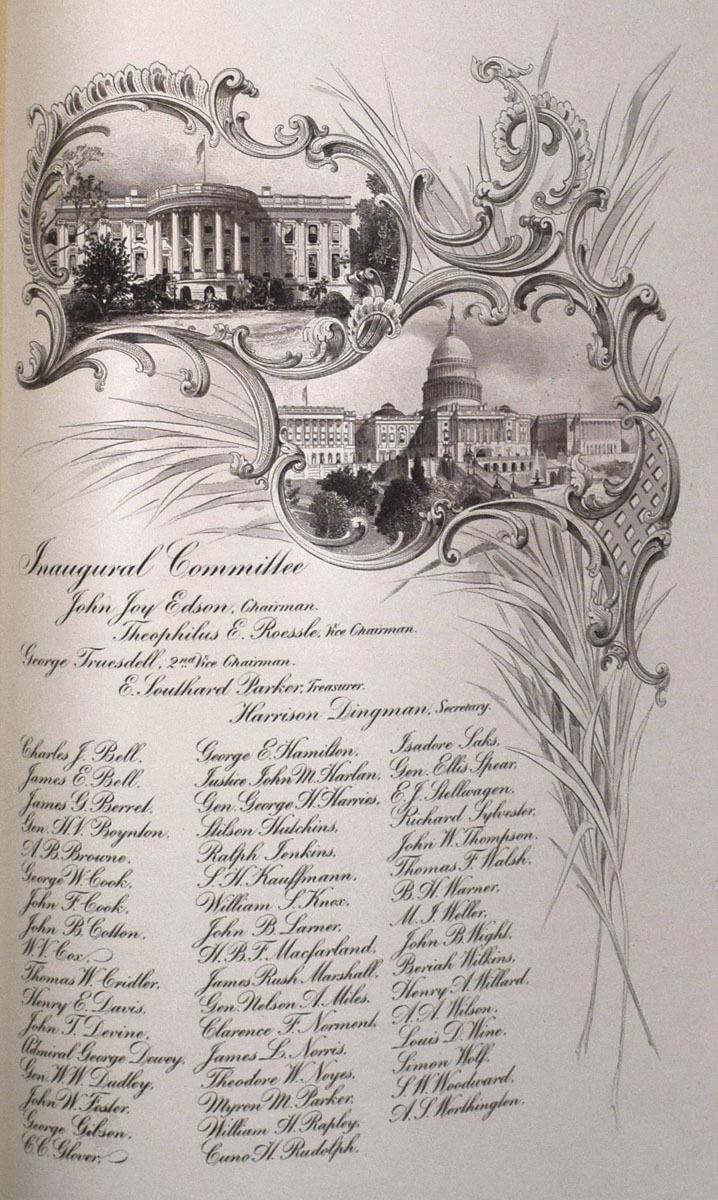 Inaugural Committee
John Joy Edson, Chairman.
Theophilus E. Roessle, Vice Chairman.
George Truesdell, 2nd Vice Chairman.
E. Southard Parker, Treasurer.
Harrison Dingman, Secretary.
Charles J. Bell.
James E. Bell.
James G. Berret.
Gen. H.V. Boynton.
A.B. Browne.
George W. Cook.
John F. Cook.
John B. Cotton.
W.V. Cox.
Thomas W. Cridler.
Henry E. Davis.
John T. Devine.
Admiral George Dewey.
Gen. W.W. Dudley.
John W. Foster.
George Gibson.
C.C. Glover.
George E. Hamilton.
Justice John M. Harlan.
Gen. George H. Harries.
Stilson Hutchins.
Ralph Jenkins.
S.H. Kauffmann.
William S. Knox.
John B. Larner.
H.B.F. Macfarland.
James Rush Marshall.
Gen. Nelson A. Miles.
Clarence F. Norment.
James L. Norris.
Theodore W. Noyes.
Myron M. Parker.
William H. Rapley.
Cuno H. Rudolph.
Isadore Saks.
Gen. Ellis Spear.
E.J. Stellwagen.
Richard Sylvester.
John W. Thompson.
Thomas F. Walsh.
B.H. Warner.
M.I. Weller.
John B. Wight.
Beriah Wilkins.
Henry A. Willard.
A.A. Wilson.
Louis D. Wine.
Simon Wolf.
S.W. Woodward.
A.S. Worthington.